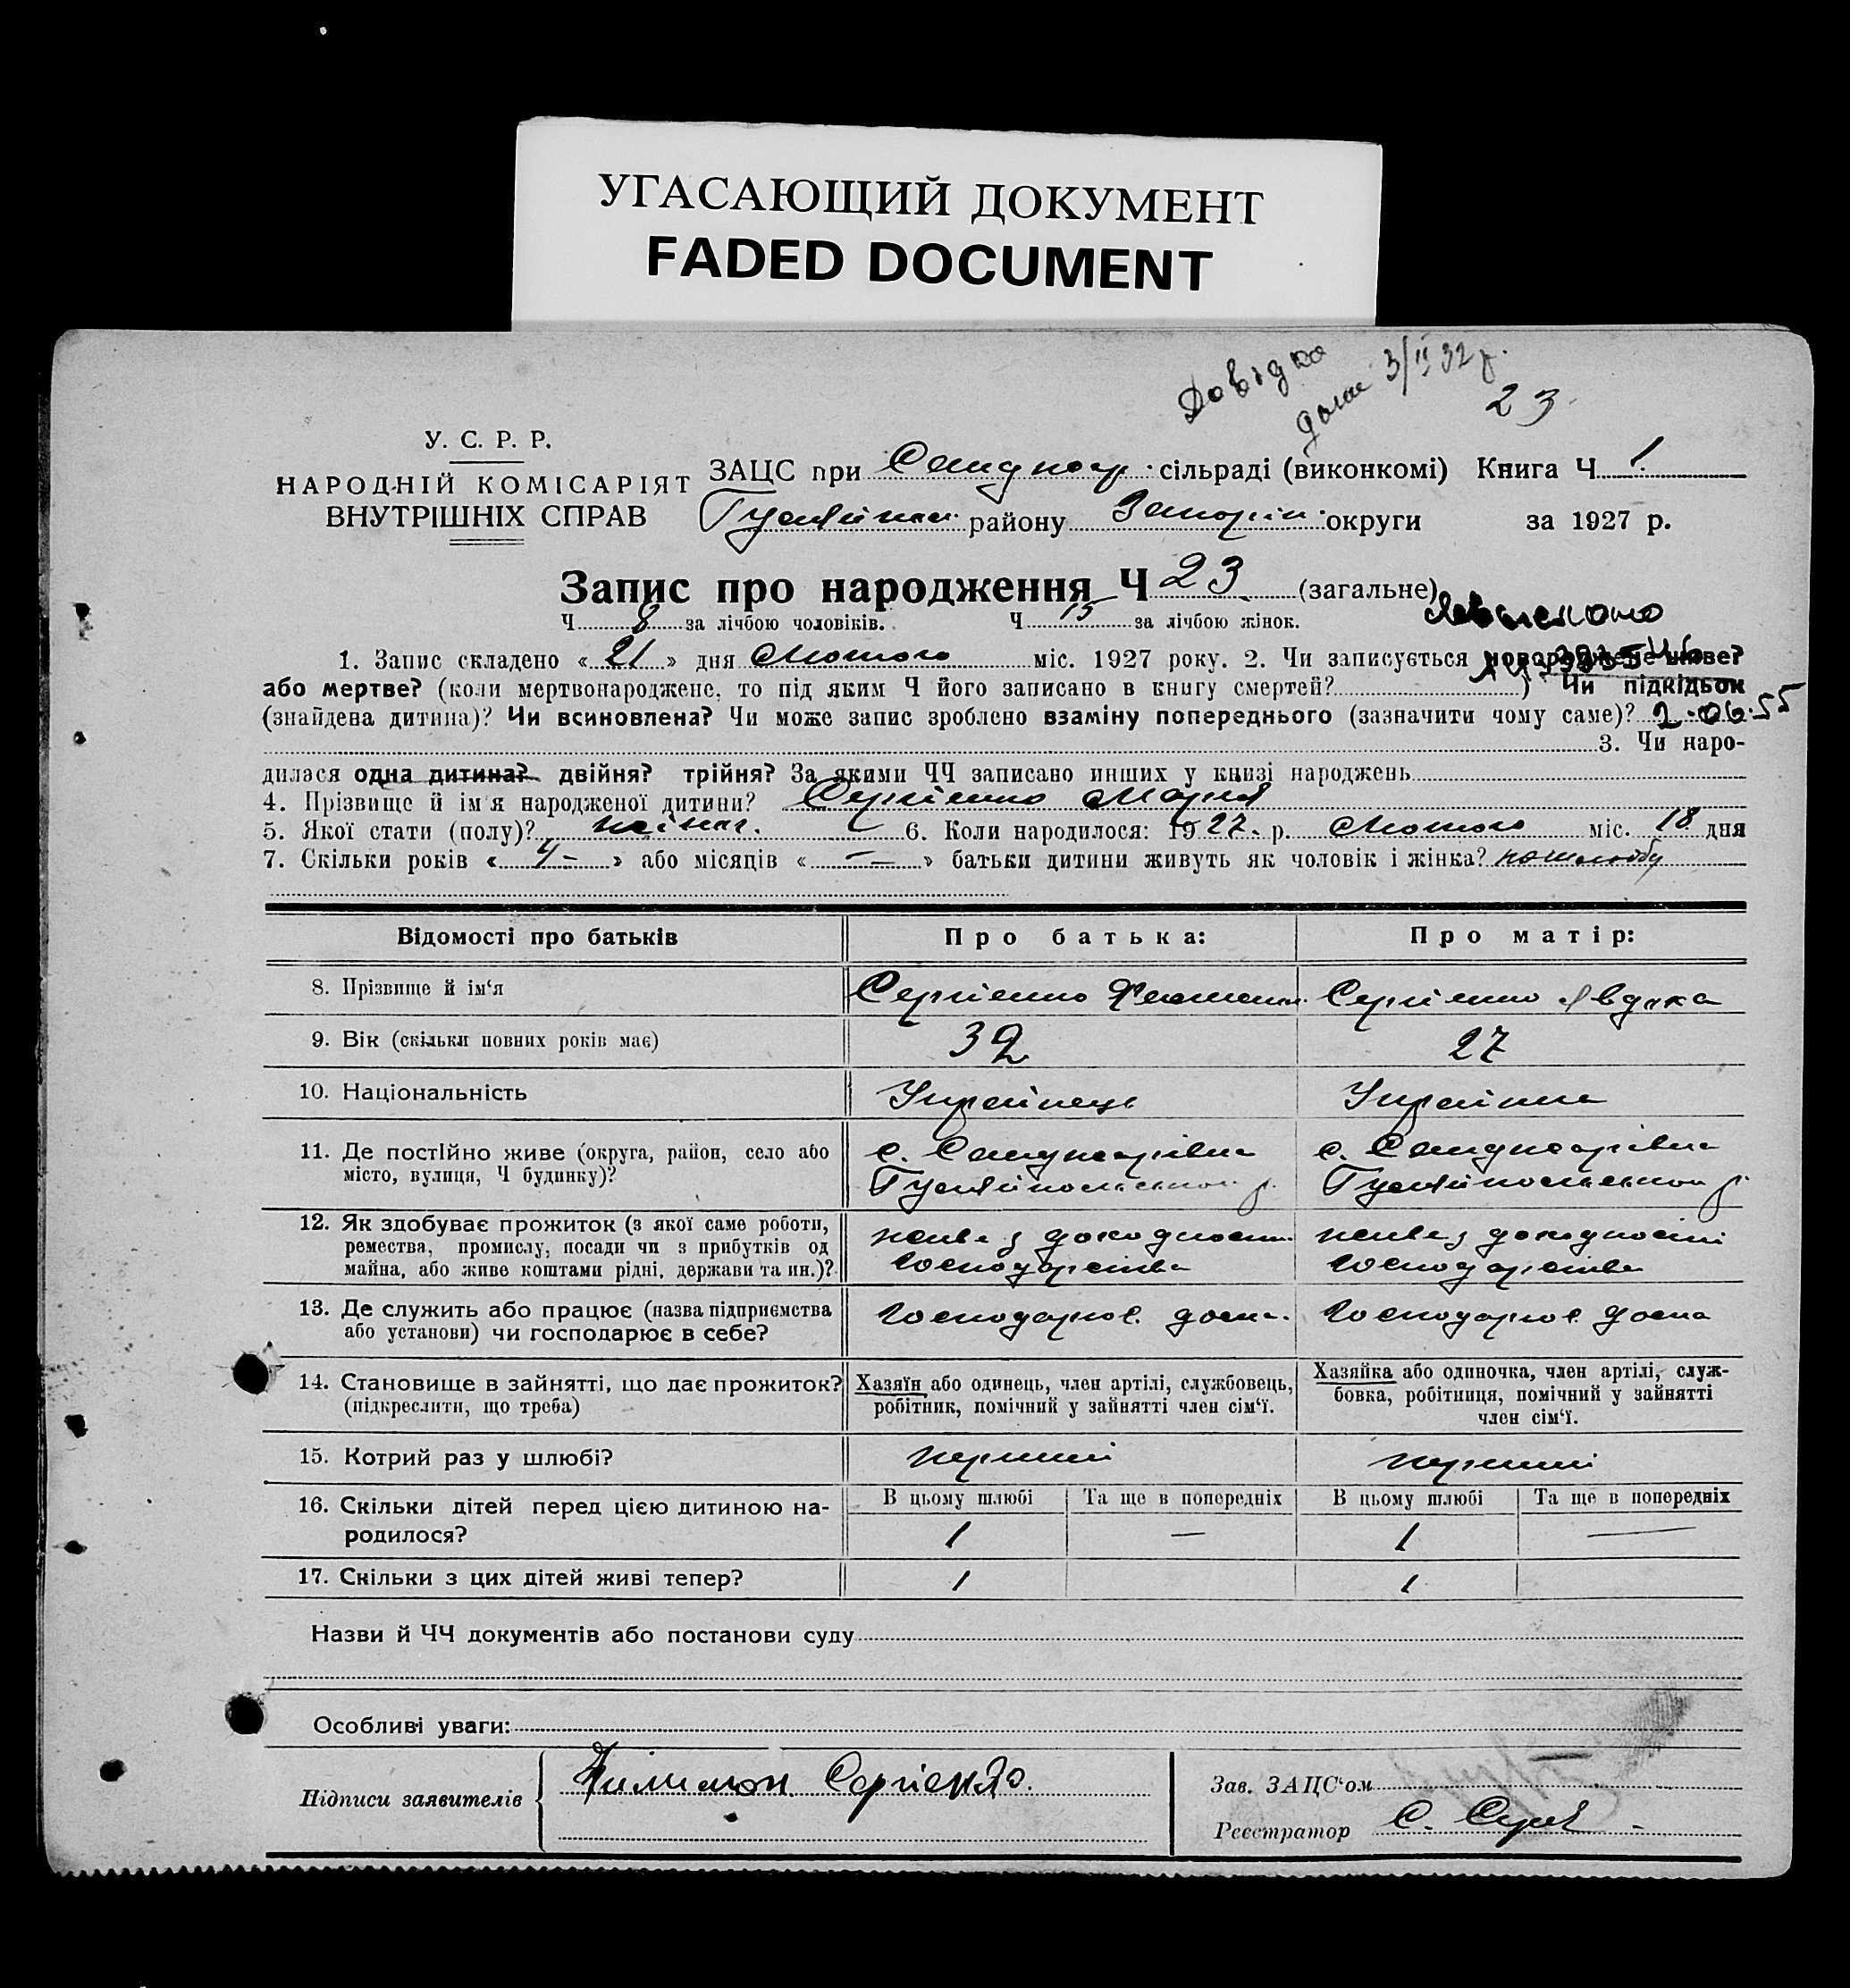 УГАСАЮЩИЙ ДОКУМЕНТ
FADED DOCUMENT
Довідка
дана 3/II 32 р.
23
У. С. Р. Р.
НАРОДНІЙ КОМІСАРІЯТ
ВНУТРІШНІХ СПРАВ
ЗАЦС при сільраді (виконкомі) Книга Ч 1.
району Запоріж. округи за 1927 р.
Запис про народження Ч 23. (загальне)
Ч 8 за лічбою чоловіків. Ч 15 за лічбою жінок.
1. Запис складено « 21 » дня Лютого міс. 1927 року. 2. Чи записується новороджене живе?
або мертве? (коли мертвонароджене, то під яким Ч його записано в книгу смертей? ) Чи підкідьок
(знайдена дитина)? Чи всиновлена? Чи може запис зроблено взаміну попереднього (зазначити чому саме)? 2.06.55
3. Чи наро-
дилася одна дитина? двійня? трійня? За якими ЧЧ записано инших у книзі народжень
4. Прізвище й ім'я народженої дитини? Сергієнко Марія
5. Якої стати (полу)? жіноч. 6. Коли народилося: 1927. р. Лютого міс. 18 дня
7. Скільки років « 4 - » або місяців « - — » батьки дитини живуть як чоловік і жінка? по шлюбу
Відомості про батьків
Про батька:
Про матір:
8. Прізвище й ім'я
Сергієнко
Сергієнко Явдоха
9. Вік (скільки повних років має)
32
27
10. Національність
Українець
Українка
11. Де постійно живе (округа, район, село або
місто, вулиця, Ч будинку)?
с.
Гуляйпольського р.
с.
Гуляйпольського р.
12. Як здобуває прожиток (з якої саме роботи,
ремества, промислу, посади чи з прибутків од
майна, або живе коштами рідні, держави та ин.)?
живе з доходности
господарства
живе з доходности
господарства
13. Де служить або працює (назва підприємства
або установи) чи господарює в себе?
господарює дома.
господарює дома
14. Становище в зайнятті, що дає прожиток?
(підкреслити, що треба)
Хазяїн або одинець, член артілі, службовець,
робітник, помічний у зайнятті член сім'ї.
Хазяйка або одиночка, член артілі, служ-
бовка, робітниця, помічний у зайнятті
член сім'ї.
15. Котрий раз у шлюбі?
перший
перший
16. Скільки дітей перед цією дитиною на-
родилося?
В цьому шлюбі
Та ще в попередніх
В цьому шлюбі
Та ще в попередніх
1
—
1
—
17. Скільки з цих дітей живі тепер?
1
1
Назви й ЧЧ документів або постанови суду
Особливі уваги:
Підписи заявителів
Филимон Сергіенко.
Зав. ЗАЦС'ом
Реєстратор С.